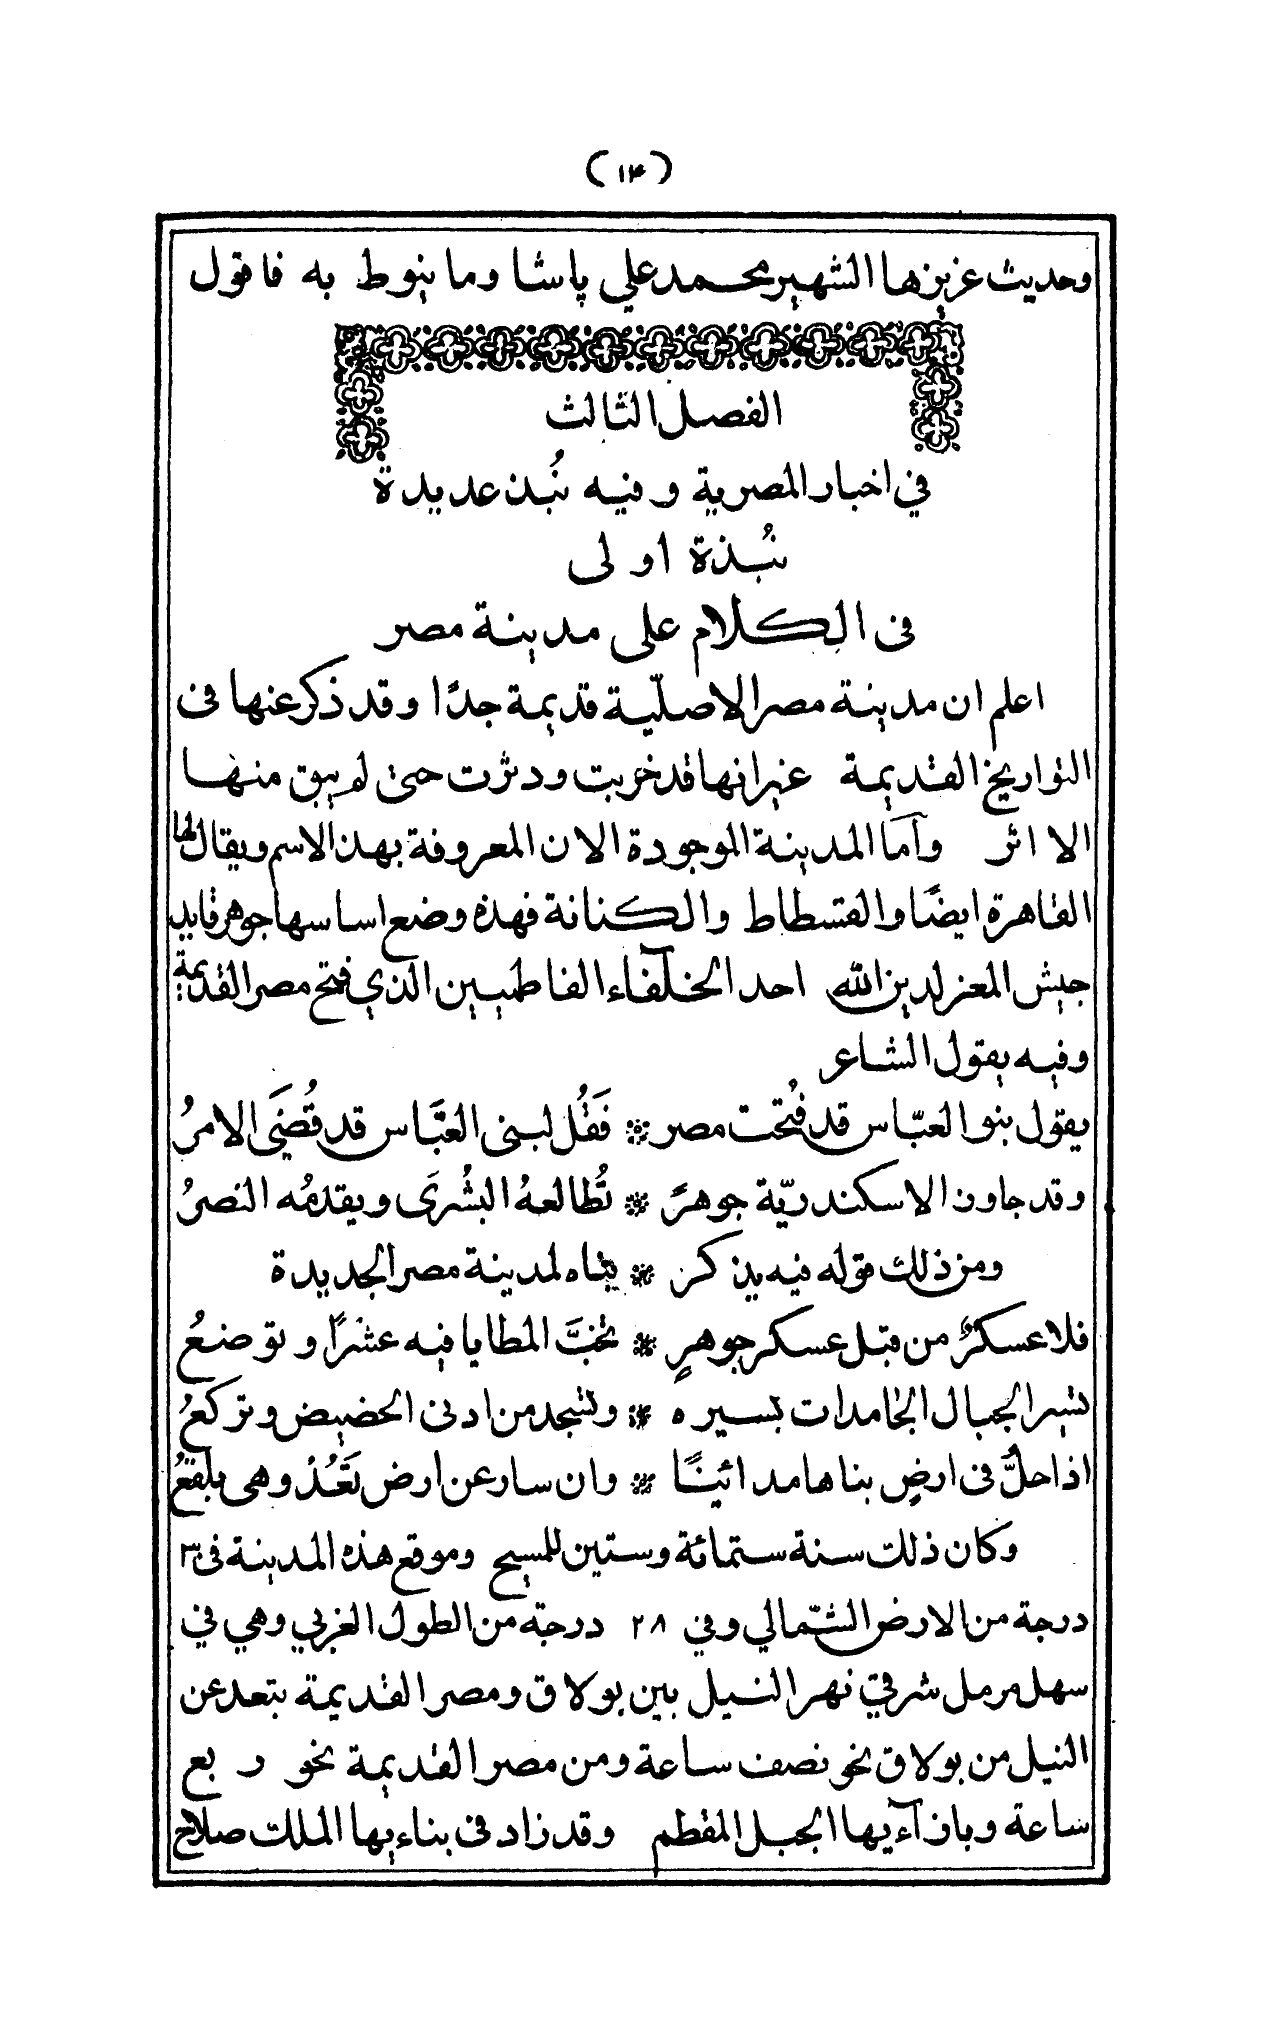 (١٤)
وحديث عزيزها الشهير محمد علي پاشا وما ينوط به فاقول
الفصل الثالث
في اخبار المصرية وفيه نُبذ عديدة
نُبذة اولى
فى الكلام على مدينة مصر
اعلم ان مدينة مصر الاصليّة قديمة جدًا وقد ذكر عنها فى
التواريخ القديمة غير انها قد خربت ودثرت حتى لم يبق منها
الا اثر وآما المدينة الموجودة الان المعروفة بهذ الاسم ويقال لها
القاهرة ايضًا والفسطاط والكنانة فهذه وضع اساسها جوهر قايد
جيش المعز لدين الله احد الخلفآء الفاطميين الذي فتح مصر القديمة
وفيه يقول الشاعر
يقول بنو العبّاس قد فُتحت مصر * فَقُل لبنى العبَّاس قد قُضَى الامرُ
وقد جاون الاسكندريّة جوهرً * تُطالعهُ البشُرَى ويقدمُه النصرُ
ومن ذلك قوله فيه يذكر * بناه لمدينة مصر الجديدة
فلا عسكرٌ من قبل عسكر جوهرٍ * تخبَّ المطايا فيه عشرًا وتوضعُ
تسير الجبال الجامدات بسيره * وتسجد من ادنى الحضيض وتركعُ
اذا حلَّ فى ارضٍ بناها مدائينًا * وان سار عن ارض تَغدُ وهى بلقعُ
وكان ذلك سنة ستمائة وستين للمسيح وموقع هذه المدينة فى ٣
درجة من الارض الشّمالي وفي ٢٨ درجة من الطول الغربي وهي في
سهل مرمل شرقي نهر النيل بين بولاق ومصر القديمة بتعد عن
النيل من بولاق نحو نصف ساعة ومن مصر القديمة نحو ربع
ساعة وبازآءيها الجبل المقطم وقد زاد فى بناءيها الملك صلاح